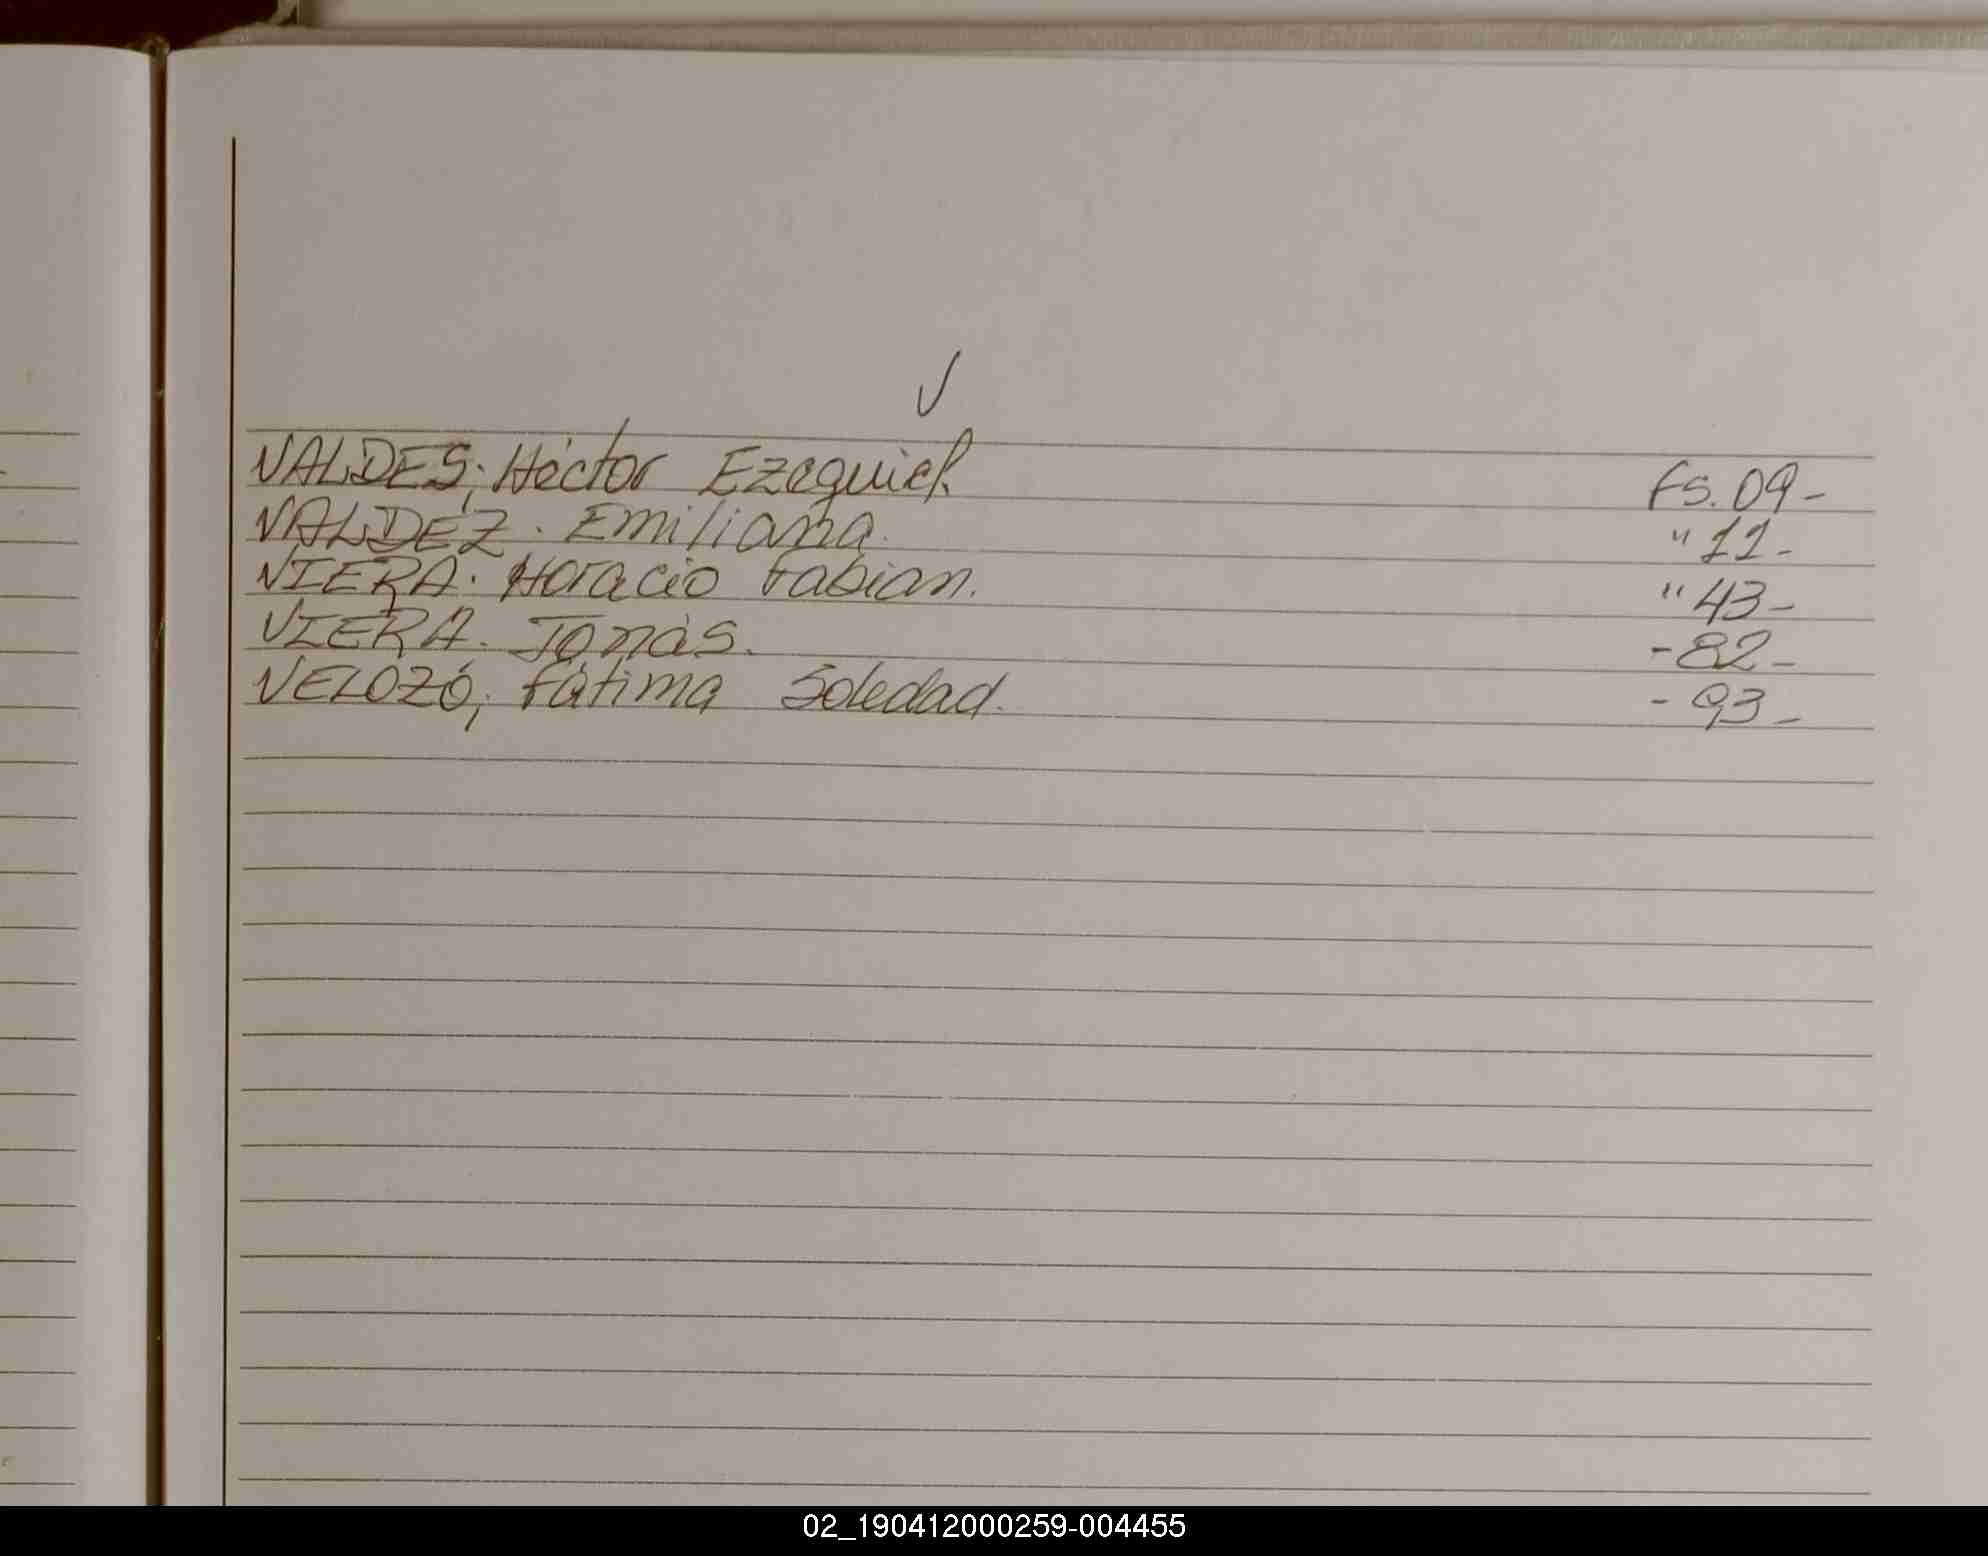 V
VALDES, Héctor Ezequiel. Fs. 09-
VALDEZ. Emiliana. " 11-
VIERA. Horacio Fabian. " 43-
VIERA. Tomás. - 82-
VELOZO, Fátima Soledad. - 93-
02_190412000259-004455